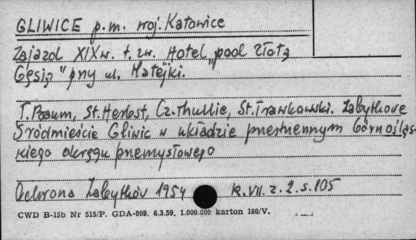 GLIWICE p.m. woj. Katowice
Zajazd XIX w. t. zw. Hotel „pod Złotą
Gęsią" przy ul. Matejki.
T. Baum, St. Herbst, Cz. Thullie, St. Trawkowski. Zabytkowe
Śródmieście Gliwic w układzie przestrzennym Górnośląs-
kiego okręgu przemysłowego
Ochrona Zabytków 1954 R. VII. z. 2. s. 105
CWD B-15b Nr 515/P. GDA-869. 6.3.59. 1.000.000 karton 180/V.